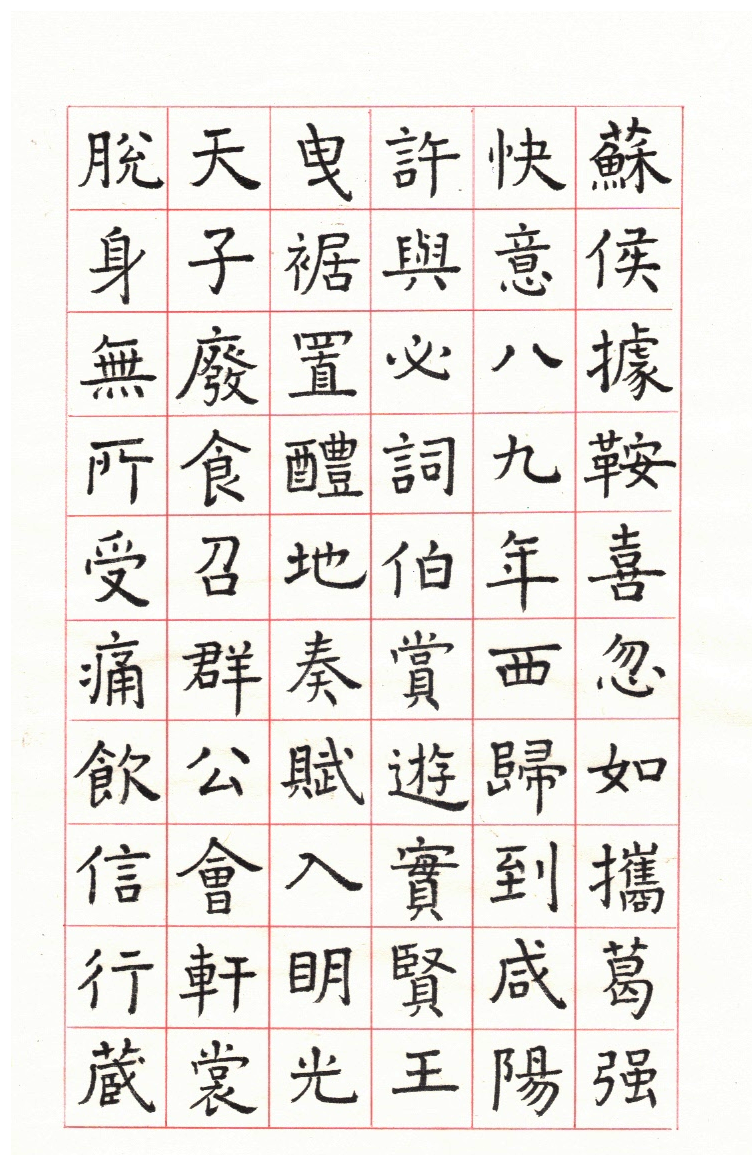 蘇侯據鞍喜忽如攜葛强
快意八九年西歸到咸陽
許與必詞伯賞遊實賢王
曳裾置醴地奏賦入明光
天子廢食召群公會軒裳
脫身無所受痛飲信行蔵